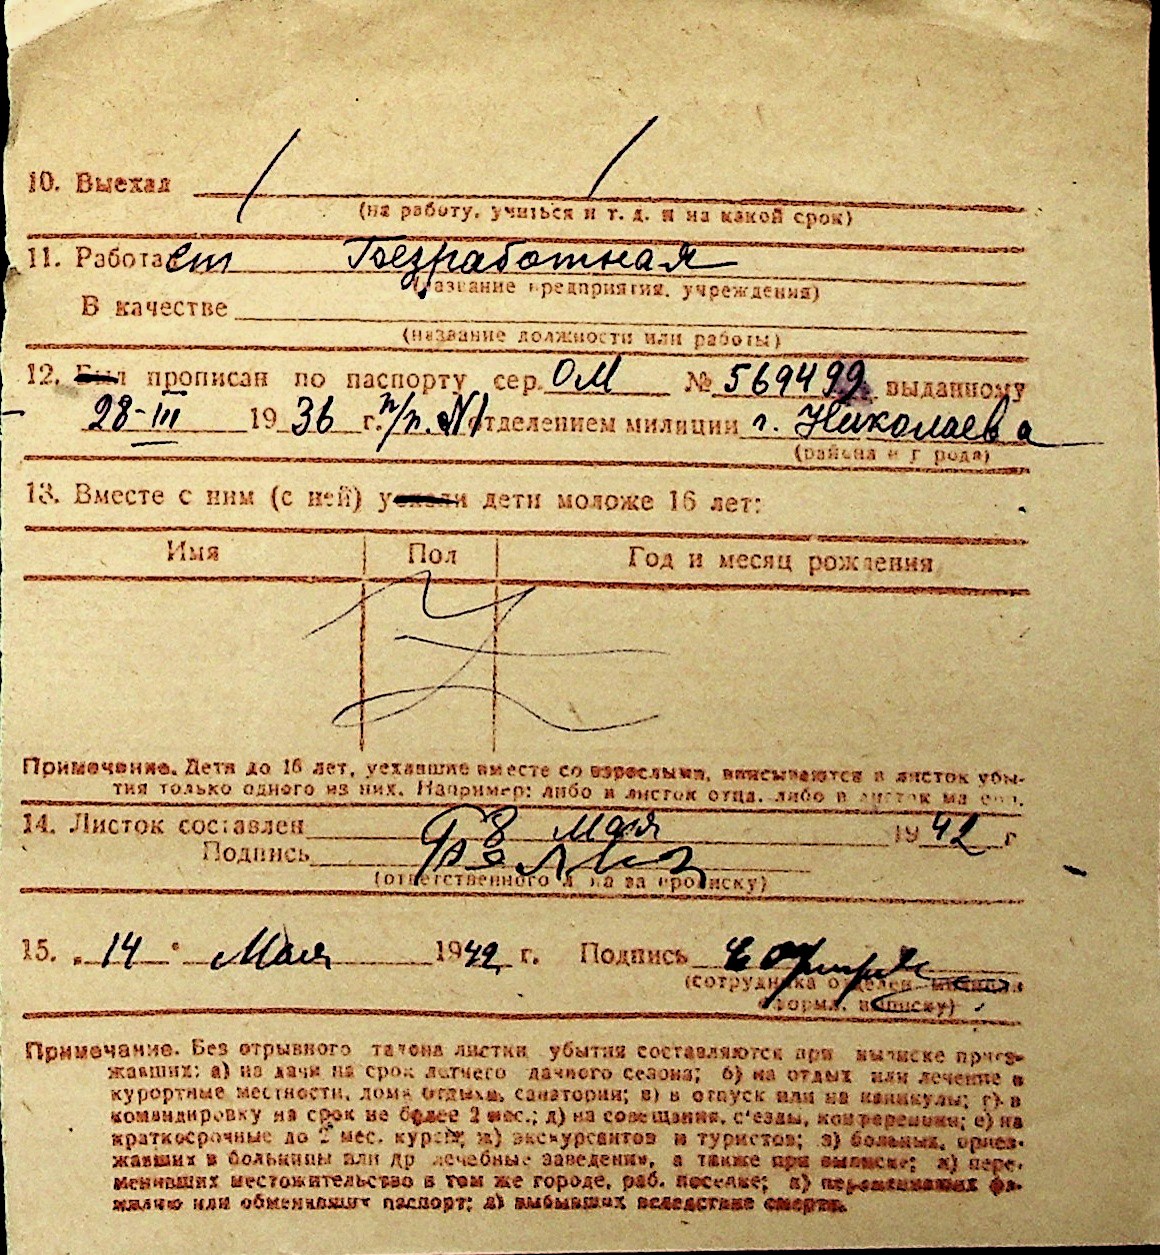 10. Выехал
(на работу, учиться и т. д. и на какой срок)
11. Работает Безработная
(название предприятия, учреждения)
В качестве
(название должности или работы)
12. Был прописан по паспорту сер. ОМ № 569499 выданному
28-III 1936 г. п/п. N1 отделением милиции г. Николаева
(района и города)
13. Вместе с ним (с ней) уехали дети моложе 16 лет:
Имя Пол Год и месяц рождения
Примечание. Дети до 16 лет, уехавшие вместе со взрослыми, вписываются в листок убы-
тия только одного из них. Например: либо в листок отца, либо в листок матери.
14. Листок составлен 8 Мая 1942 г
Подпись
(ответственного лица за прописку)
15. „14" Мая 1942 г. Подпись
(сотрудника отделен. милиции
оформл. выписку)
Примечание. Без отрывного талона листки убытия составляются при выписке приез-
жавших: а) на дачи на срок летнего дачного сезона; б) на отдых или лечение в
курортные местности, дома отдыха, санатории; в) в отпуск или на каникулы; г) в
командировку на срок не более 2 мес.; д) на совещания, с'езды, конференции; е) на
краткосрочные до 2 мес. курсы; ж) экскурсантов и туристов; з) больных, приез-
жавших в больницы или др лечебные заведения, а также при выписке; и) пере-
менивших местожительство в том же городе, раб. поселке; к) переменивших фа-
милию или обменявших паспорт; л) выбывших вследствие смерти.